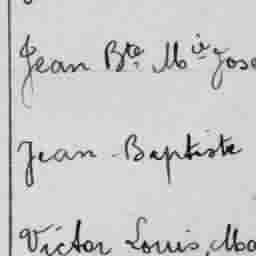 Jean Bte Mie Jose
Jean-Baptiste
Victor Louis, Ma